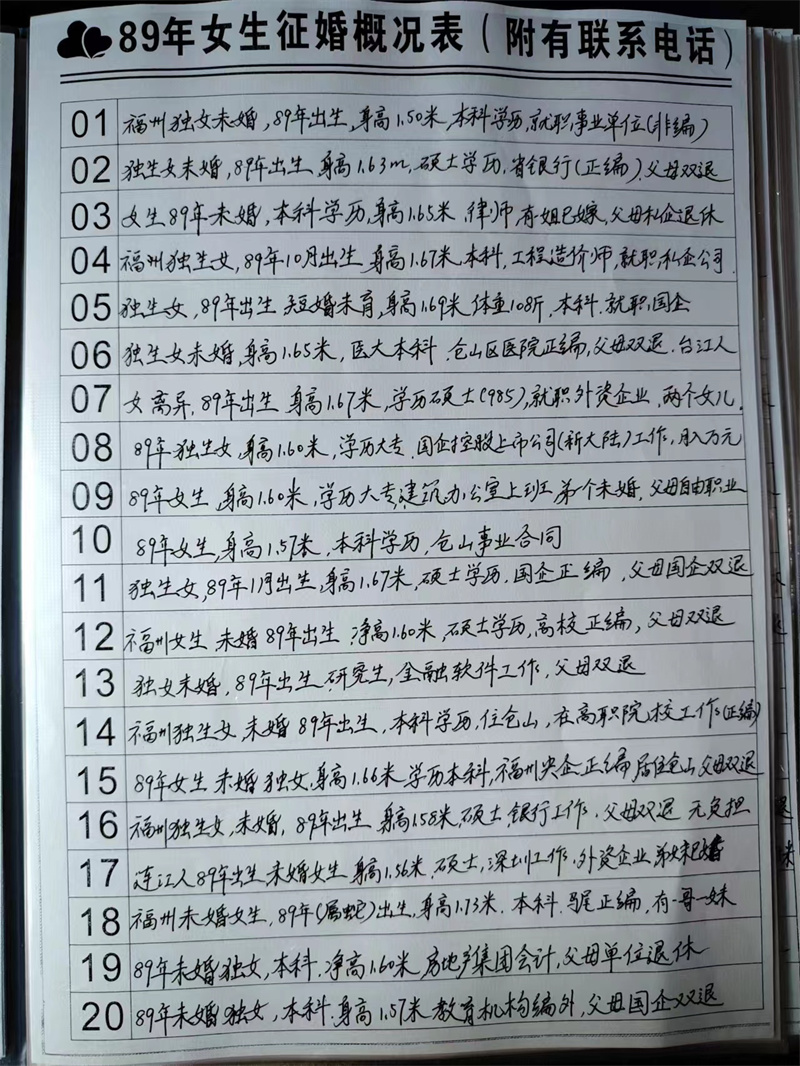 89年女生征婚概况表（附有联系电话）
01 福州独女未婚，89年出生，身高1.50米，本科学历，就职事业单位(非编)
02 独生女未婚，89年出生，身高1.63m，硕士学历，省银行(正编)，父母双退
03 女生89年未婚，本科学历，身高1.65米，律师，有姐已嫁，父母私企退休
04 福州独生女，89年10月出生，身高1.67米，本科，工程造价师，就职私企公司.
05 独生女，89年出生 短婚未育，身高1.69米 体重108斤，本科.就职国企
06 独生女未婚，身高1.65米，医大本科 仓山区医院正编，父母双退.台江人
07 女离异，89年出生 身高1.67米，学历硕士(985)，就职外资企业，两个女儿.
08 89年独生女，身高1.60米，学历大专.国企控股上市公司(新大陆)工作，月入万元
09 89年女生，身高1.60米，学历大专，建筑办公室上班，弟一个未婚，父母自由职业
10 89年女生，身高1.57米，本科学历，仓山事业合同
11 独生女，89年1月出生，身高1.67米，硕士学历.国企正编，父母国企双退
12 福州女生 未婚89年出生 净高1.60米，硕士学历，高校正编，父母双退
13 独女未婚，89年出生，研究生，金融软件工作，父母双退
14 福州独生女，未婚 89年出生，本科学历，住仓山，在高职院校工作(正编)
15 89年女生 未婚 独女，身高1.66米 学历本科，福州央企正编 居住仓山 父母双退
16 福州独生女，未婚，89年出生 身高1.58米，硕士，银行工作.父母双退 无负担
17 连江人89年出生 未婚女生 身高1.56米.硕士，深圳工作.外资企业 弟妹已婚
18 福州未婚女生，89年(属蛇)出生，身高1.73米.本科.马尾正编，有一哥一妹
19 89年未婚独女，本科.净高1.60米 房地产集团会计，父母单位退休
20 89年未婚独女，本科.身高1.57米 教育机构编外，父母国企双退